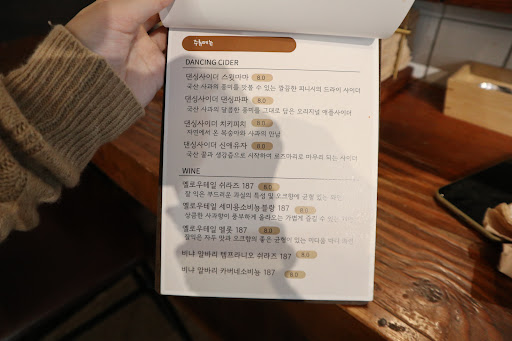 주류메뉴
DANCING CIDER
댄싱사이더 스윗마마 8.0
국산 사과의 풍미를 맛볼 수 있는 깔끔한 피니시의 드라이 사이더
댄싱사이더 댄싱파파 8.0
국산 사과의 달콤한 풍미를 그대로 담은 오리지널 애플사이더
댄싱사이더 치키피치 8.0
자연에서 온 복숭아와 사과의 만남
댄싱사이더 신애유자 8.0
국산 꿀과 생강즙으로 시작하여 로즈마리로 마무리 되는 사이더
WINE
옐로우테일 쉬라즈 187 8.0
잘 익은 부드러운 과실의 특성 및 오크향에 균형 있는 와인
옐로우테일 세미용소비뇽블랑 187 8.0
상큼한 사과향이 풍부하게 올라오는 가볍게 즐길 수 있는
옐로우테일 멜롯 187 8.0
잘익은 자두 맛과 오크향의 좋은 균형이 있는 미디움 바디 와인
비냐 알바리 템프라니오 쉬라즈 187 8.0
비냐 알바리 카버네소비뇽 187 8.0